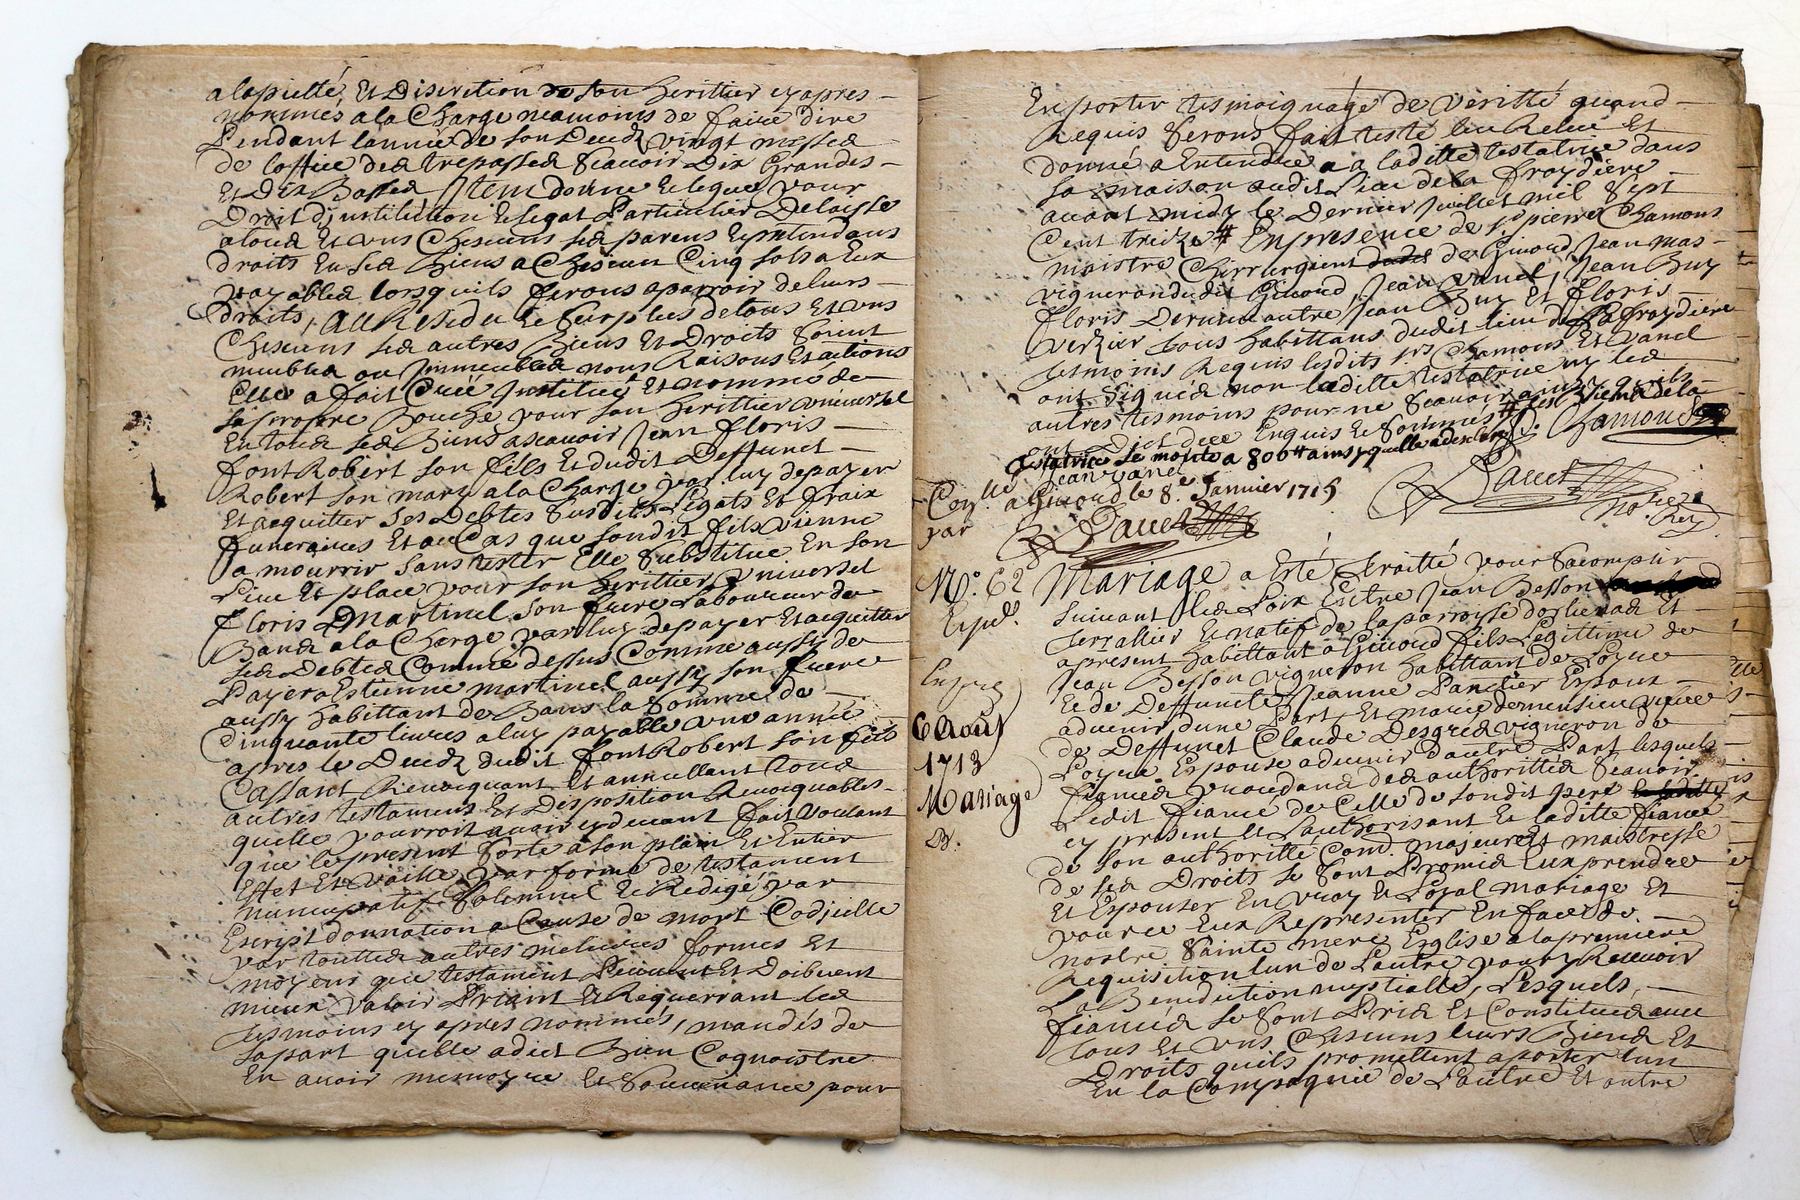 alapietté Et Discretion de son herittier cy apres
nommés ala Charge neamoins de faire dire
Pendant lannée de son Decedz vingt messes
de loffice des trepassés Scavoir Dix Grandes
Et Dix Basses Item donne Et legue pour
Droit dJnstitution Et legat Particulier Delaisse
a tous Et uns Chescuns ses parens Et prettendans
droits En ses Biens a Chescun Cinq sols a Eux
payables lorsquils ferons aparoir de leurs
droits, Au Residu Et Surplus de tous Et uns
Chescuns ses autres Biens Et Droits Soient
meubles ou Jmmeubles noms Raisons Et actions
Elle a fait Créé Jnstitué Et nommé de
sa propre Bouche pour son heritier universel
En tous ses Biens ascavoir Jean floris
font Robert son fils Et dudit Deffunct
Robert son mary ala Charge par luy de payer
Et acquitter ses Debtes susdits Legats Et fraix
funeraires Et au Cas que sondit fils vienne
a mourrir sans tester Elle Substitue En son
Lieu Et place pour son heritier Universel
floris Martinel son frere Laboureur de
Bans ala Charge par luy de payer Et acquitter
ses Debtes Comme dessus Comme aussy de
Payer a Estienne martinel aussy son frere
aussy habittant de Bans la Somme de
Cinquante livres a luy payable une année
apres le Decedz dudit font Robert son fils
Cassant Revocquant Et annullant tous
autres testamens Et Disposition Revocquables
quelle pourroit avoir cy devant fait Voulant
que le present Sorte a son plain Et Entier
Effet Et vaille par forme de testament
nuncupatif Solemnel Et Redigé par
Escript donnation a Cause de mort Codicille
par touttes autres melieures formes Et
moyens que testament Peuvent Et Doibvent
mieux valoir Priant Et Requerrant les
tesmoins cy apres nommés, mandés de
sa part quelle a dict Bien Cognoistre
En avoir memoyre Et Souvenance pour
En porter tesmoignage de veritté quand
Requis Serons fait testé leu Releu Et
donné a Entendre a laditte testatrice dans
sa maison audit Lieu de la froydiere
avant midy le Dernier Juillet mil Sept
Cent treize # En presence de sr pierre Chamons
maistre Chirurgient de Givord, Jean mas
vigneron dudit Givord, Jean Vanel, Jean Buy
floris Dervieu autre Jean Buy Et floris
Verzier tous habittans dudit lieu de la froydiere
tesmoins Requis lesdits srs Chamons Et Vanel
ont signés non laditte testatrice ny les
autres tesmoins pour ne Scavoir ainsy quils
ont dict de ce Enquis Et Sommés # les Biens de la
testatrice se monte a 800# ainsy quelle a declaré. Chamous
Jean Vanel
Con.llé a Givord le 8e Janvier 1715
par
Pavet
Pavet
No.re Roy
No. 62
Exped.
Mariage a Esté Traitté pour Sacomplir
Suivant les Loix Entre Jean Besson
Serrallier Et natif de la parroysse dorlienas Et
a present habittant a Givord fils Legittime de
Jean Besson vigneron habittant de Loyre
Et de Deffuncte Jeanne Pancher Espoux
advenir dune Part, Et marie veufve
de Deffunct Claude Desgres vigneron de
Loyre Espouse advenir dautre Part lesquels
fiancés procedans des authorittés Scavoir
Ledit fiancé de Celle de sondit pere
cy present Et Lauthorisant Et laditte fiancé
de son authoritté Comme majeure Et maistresse
de ses Droits se Sont Promis Eux prendre
Et Espouser En vray Et Loyal mariage Et
pour ce Eux Representer En face de
nostre Sainte mere Esglise ala premiere
Requisition lun de Lautre pour y Recevoir
La Benediction nuptialle, Lesquels
fiancés se Sont Pris Et Constitués avec
tous Et uns Chescuns leurs Biens Et
Droits quils promettent aporter lun
En la Compagnie de Lautre Et outre
6 Aout
1713
Mariage